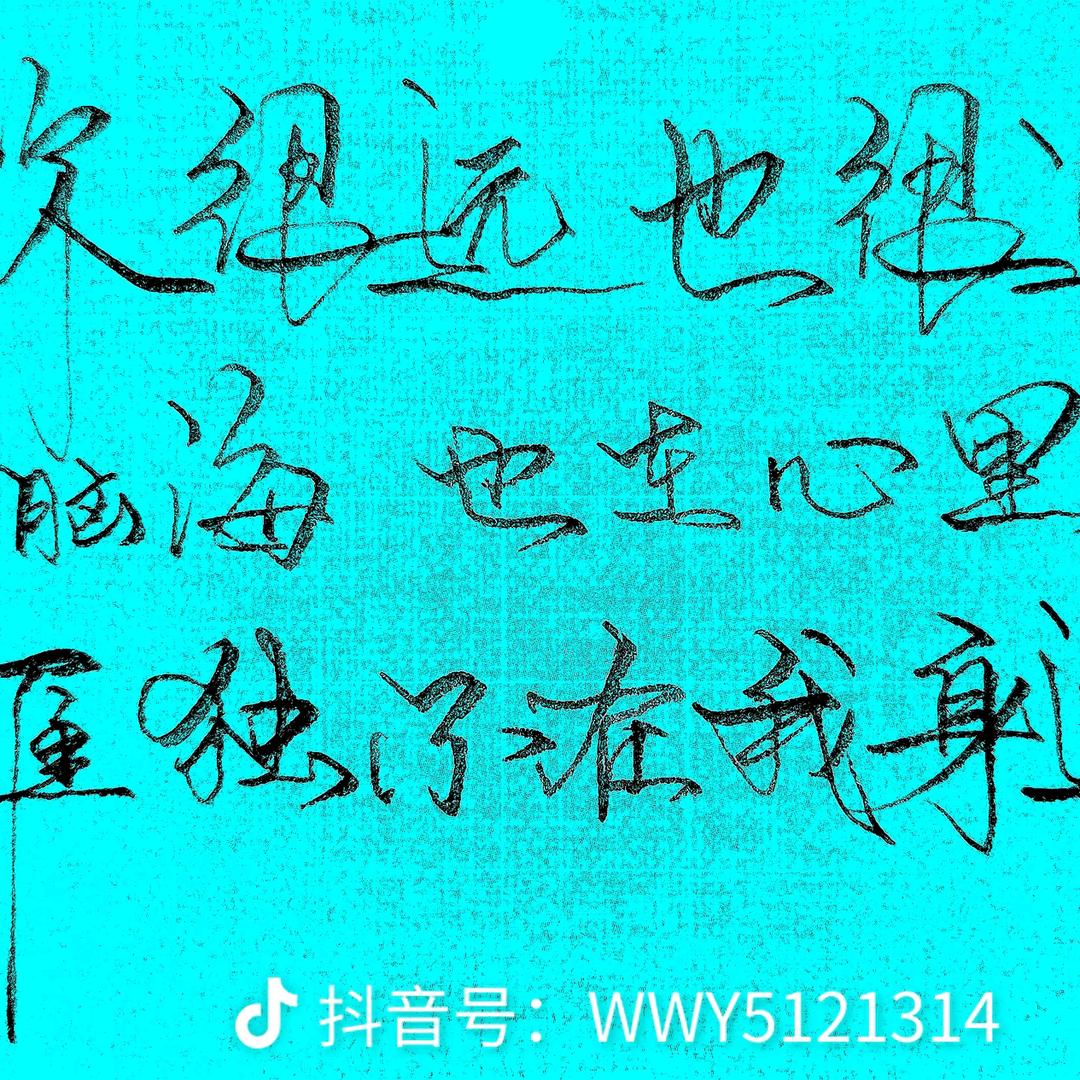 很远也很
脑海 也在心里
独不在我身
抖音号：WWY5121314